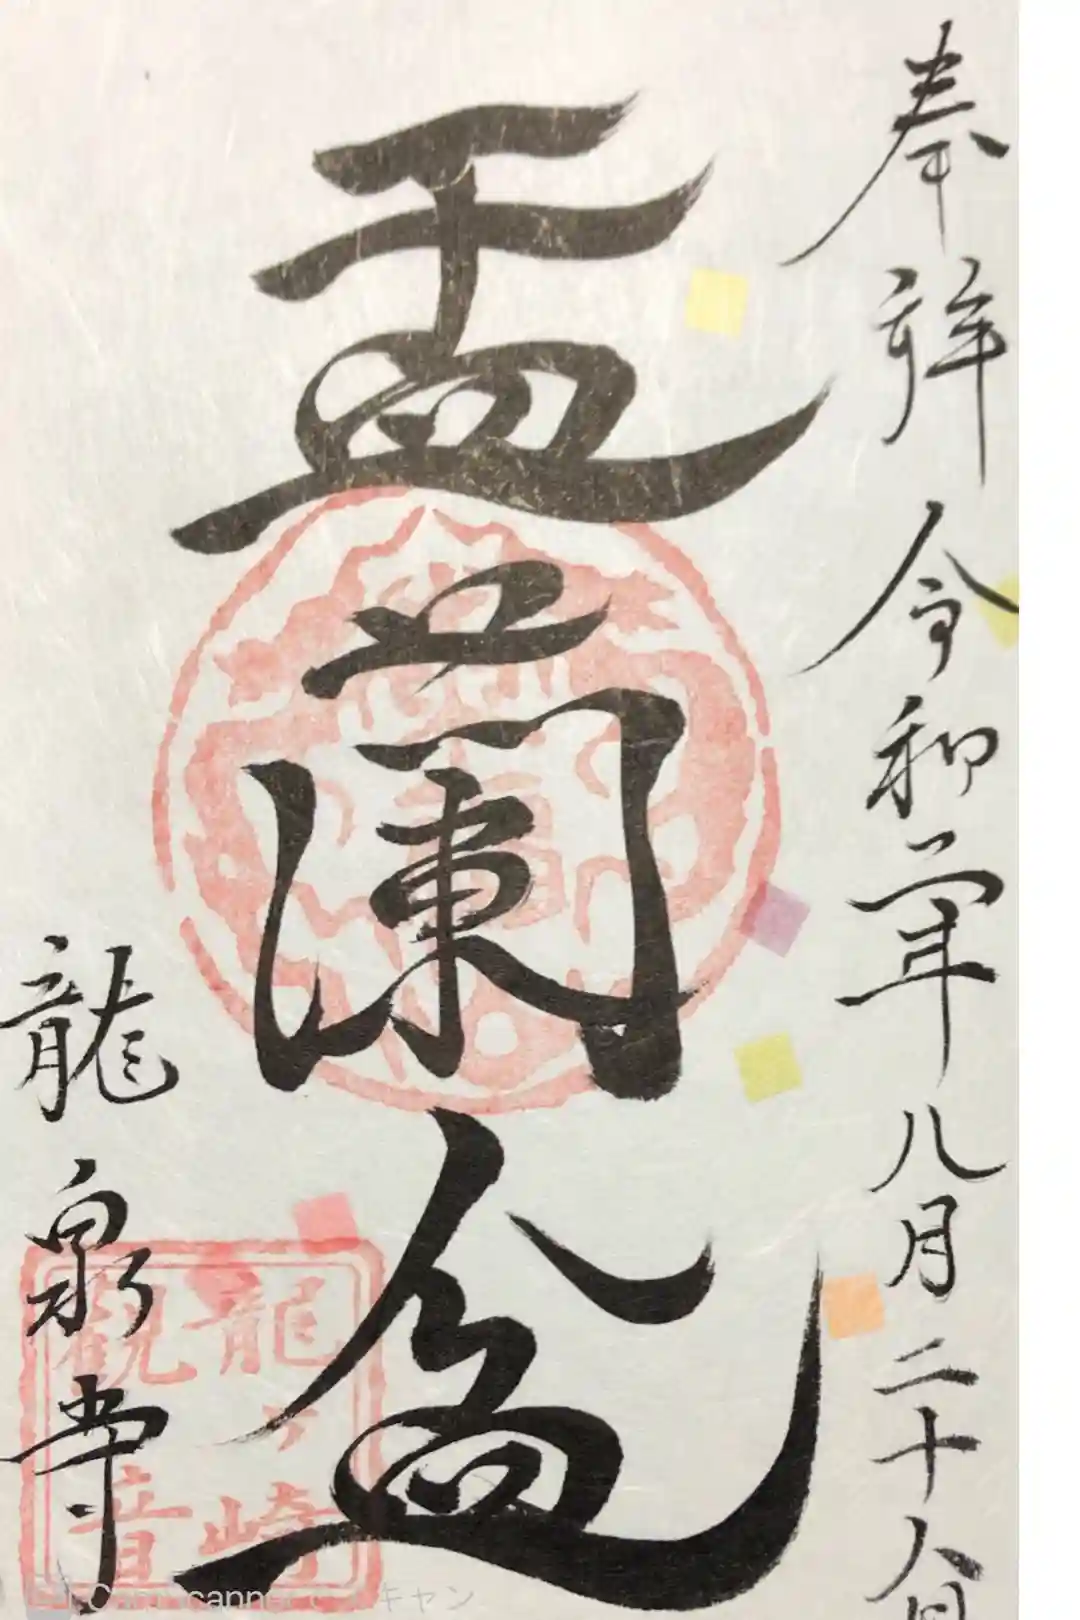 奉拝 令和六年 八月二十八日
盂蘭盆
龍泉寺
龍ヶ崎
観音
CamScannerでスキャン